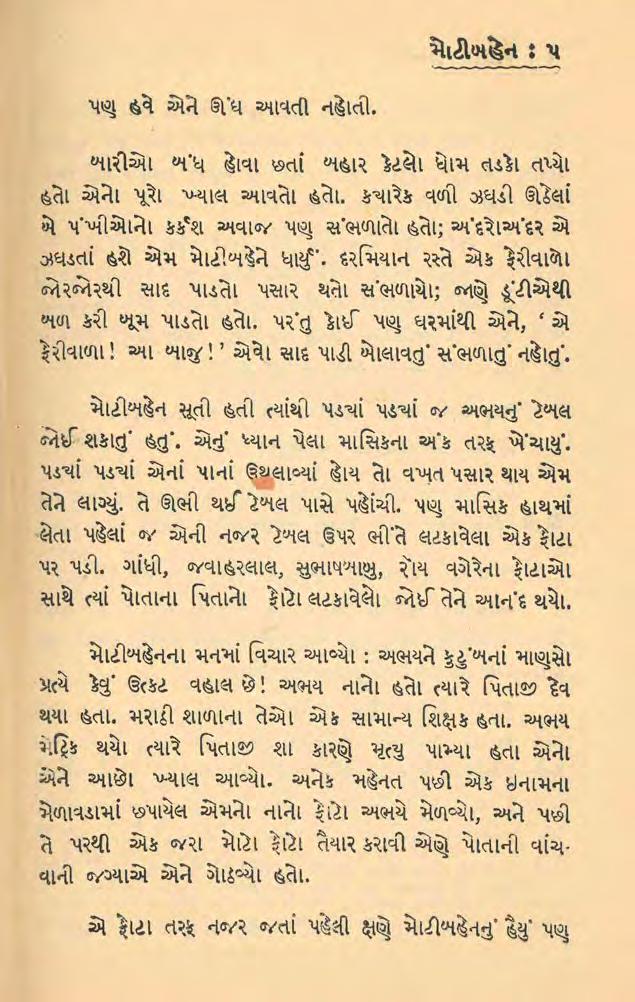 મોટીબહેન : ૫
પણ હવે એને ઊંઘ આવતી નહોતી.
બારીઓ બંધ હોવા છતાં બહાર કેટલો ધોમ તડકો તપ્યો
હતો એનો પૂરો ખ્યાલ આવતો હતો. કયારેક વળી ઝઘડી ઊઠેલાં
બે પંખીઓનો કર્કશ અવાજ પણ સંભળાતો હતો; અંદરોઅંદર એ
ઝઘડતાં હશે એમ મોટીબહેને ધાર્યું. દરમિયાન રસ્તે એક ફેરીવાળો
જોરજોરથી સાદ પાડતો પસાર થતો સંભળાયો; જાણે ડૂંટીએથી
બળ કરી બૂમ પાડતો હતો. પરંતુ કોઈ પણ ઘરમાંથી એને, ‘ એ
ફેરીવાળા ! આ બાજુ ! ’ એવો સાદ પાડી બોલાવતું સંભળાતું નહોતું.
મોટીબહેન સૂતી હતી ત્યાંથી પડયાં પડયાં જ અભયનું ટેબલ
જોઈ શકાતું હતું. એનું ધ્યાન પેલા માસિકના અંક તરફ ખેંચાયું.
પડયાં પડયાં એનાં પાનાં ઉથલાવ્યાં હોય તો વખત પસાર થાય એમ
તેને લાગ્યું. તે ઊભી થઈ ટેબલ પાસે પહોંચી. પણ માસિક હાથમાં
લેતા પહેલાં જ એની નજર ટેબલ ઉપર ભીંતે લટકાવેલા એક ફોટા
પર પડી. ગાંધી, જવાહરલાલ, સુભાષબાબુ, રોય વગેરેના ફોટાઓ
સાથે ત્યાં પોતાના પિતાનો ફોટો લટકાવેલો જોઈ તેને આનંદ થયો.
મોટીબહેનના મનમાં વિચાર આવ્યો : અભયને કુટુંબનાં માણસો
પ્રત્યે કેવું ઉત્કટ વહાલ છે! અભય નાનો હતો ત્યારે પિતાજી દેવ
થયા હતા. મરાઠી શાળાના તેઓ એક સામાન્ય શિક્ષક હતા. અભય
મૅટ્રિક થયો ત્યારે પિતાજી શા કારણે મૃત્યુ પામ્યા હતા એનો
એને આછો ખ્યાલ આવ્યો. અનેક મહેનત પછી એક ઇનામના
મેળાવડામાં છપાયેલ એમનો નાનો ફોટો અભયે મેળવ્યો, અને પછી
તે પરથી એક જરા મોટો ફોટો તૈયાર કરાવી એણે પોતાની વાંચ-
વાની જગ્યાએ એને ગોઠવ્યો હતો.
એ ફોટા તરફ નજર જતાં પહેલી ક્ષણે મોટીબહેનનું હૈયું પણ